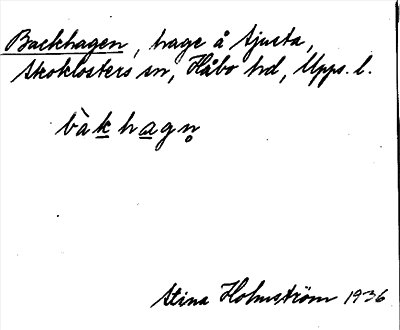 Backhagen, hage å Sjusta,
Skoklosters sn, Håbo hd, Upps. l.
bàkhagn̥
Stina Holmström 1936